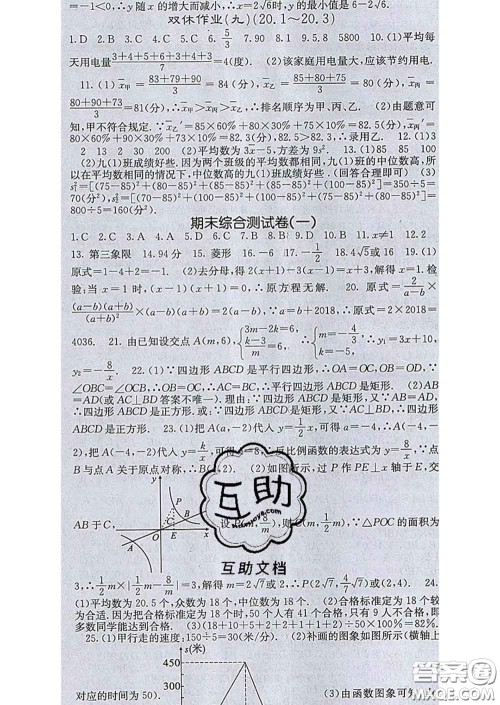 =-1<0,∴y 随 x 的增大而减小,∴当 x=2√6时,y 的最小值是 6-2√6.
双休作业(九)(20.1~20.3)
1.D 2.D 3.A 4.D 5.C 6. 5/3 7.90 8.1 9.5 9.8 10.(1)平均每
天用电量 (3+4+5+6+3+4+3+4)/8 =4(度). (2)该家庭用电量大,应该节约用电.
11.(1)x̄甲= (83+79+90)/3 =84(分),x̄乙= (85+80+75)/3 =80(分),x̄丙=
(80+90+73)/3 =81(分),∴x̄甲>x̄丙>x̄乙,∴排名顺序为甲、丙、乙. (2)由题意可
知,甲不符合规定.∵x̄乙′=85×60%+80×30%+75×10%=82.5(分),x̄丙′=
80×60%+90×30%+73×10%=82.3(分),82.5>82.3,∴录用乙. 12.(1)2
3 2 13 2 30 200 (2)平均数为 3x-5,方差为 9s². 13.(1)85 85 100
(2)九(1)班成绩好些.因为两个班级的平均数都相同,九(1)班的中位数高,所
以在平均数相同的情况下,中位数高的九(1)班成绩好些.(回答合理即可) (3)
s₁²=[(75-85)²+(80-85)²+(85-85)²+(85-85)²+(100-85)²]=350÷5=
70(分²),s₂²=[(70-85)²+(100-85)²+(100-85)²+(75-85)²+(80-85)²]=
800÷5=160(分²).
期末综合测试卷(一)
1.C 2.C 3.A 4.A 5.D 6.C 7.B 8.B 9.D 10.B 11.x≠1 12.2
13.第三象限 14.94分 15.菱形 16.-6 17.-1/2 18.4√5或16 19.(1)
原式=1-4+2=-1. (2)去分母,得 2(x+1)-3(x-1)=x+3,解得 x=1.检
验:当 x=1 时,(x-1)(x+1)=0,∴原方程无解. 20.原式= 2/(a-b) ×
(a-b)(a+b)/(a+b)² ×(a-b)(a+b)=2(a-b),∵a=b+2018,∴原式=2×2018=
4036. 21.由已知设交点 A(m,6),∴{3m-2k=6, (k-3)/m=6, ∴y₁=3x+10,
y₂=-8/x. 22.(1)∵四边形 ABCD 是平行四边形,∴OA=OC,OB=OD.∵
∠OBC=∠OCB,∴OB=OC,∴AC=BD,∴平行四边形 ABCD 是矩形. (2)AB
=AD(或 AC⊥BD 答案不唯一).理由:∵四边形 ABCD 是矩形,又∵AB=AD,∴
四边形 ABCD 是正方形.或:∵四边形 ABCD 是矩形,又∵AC⊥BD,∴四边形
ABCD 是正方形. 23.(1)把点 A(a,-2)代入 y=1/2x,可得 a=-4,∴A(-4,-
2),把点 A(-4,-2)代入 y=k/x,可得 k=8,∴反比例函数的表达式为 y=8/x,∵点
B 与点 A 关于原点对称,∴B(4,2). (2)如图所示,过 P 作 PE⊥x 轴于 E,交
AB 于 C, 设 P(m,8/m),则 C(m,1/2m),∵△POC 的面积为
3,∴1/2m×|1/2m-8/m|=3,解得 m=2√7或2,∴P(2√7,4/7√7)或(2,4). 24.
(1)平均数为 20.5 个,众数为 18 个,中位数为 18 个. (2)合格标准定为 18 个较
为合适.因为把合格标准定为 18 个时,50 个人有 41 个合格,只有 9 人不合格,即
多数同学能达到合格. (3)合格率为(50-2-1-6)÷50×100%=82%.
25.(1)甲行走的速度:150÷5=30(米/分). (2)补画的图象如图所示(横轴上
s(米)
450
300
对应的时间为 50). (3)由函数图象可知
y
P
C
O
E
x
互助
互助文档
答案圈
MXQE.COM